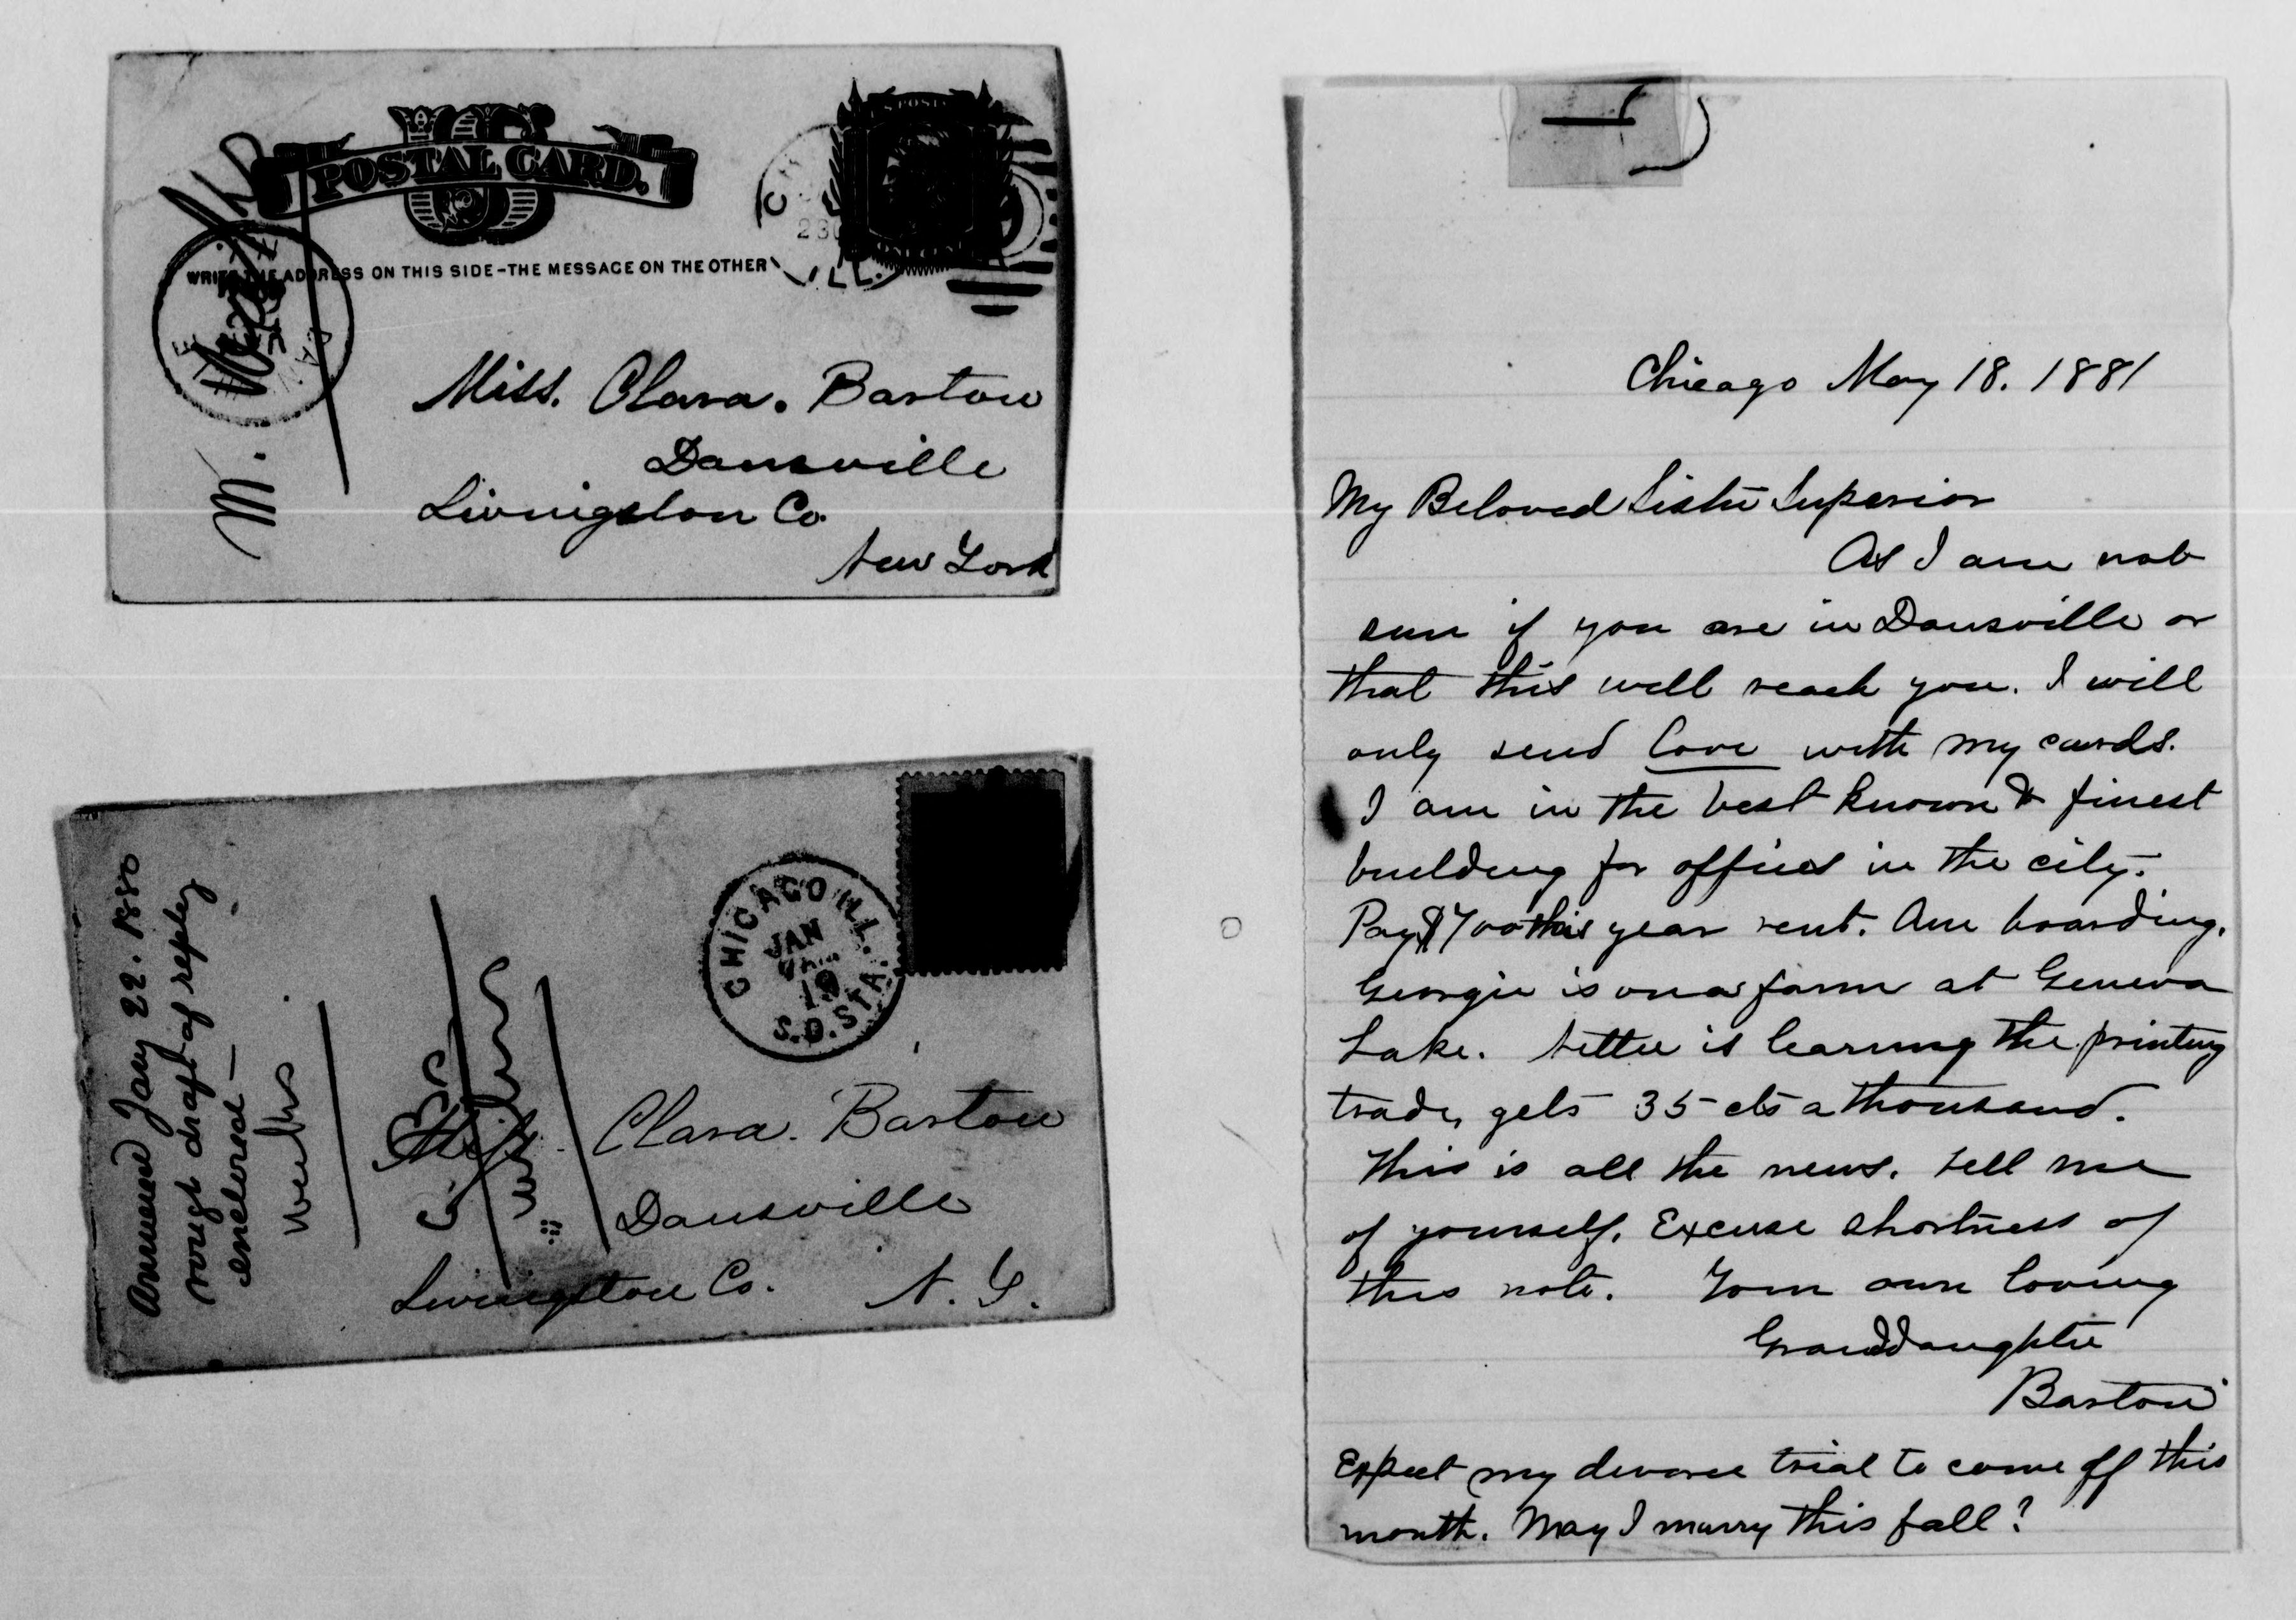 U.S.
POSTAL CARD.
WRITE THE ADDRESS ON THIS SIDE-THE MESSAGE ON THE OTHER
ILL.
M.
Miss. Clara. Barton
Dansville
Livingston Co.
New York
CHICAGO ILL.
JAN
19
S.D. STA.
Answered Jany 22. 1880
rough draft of reply
enclosed —
Weeks
Clara. Barton
Dansville
Livingston Co. N. Y.
Chicago May 18. 1881
My Beloved Sister Superior
As I am not
sure if you are in Dansville or
that this will reach you. I will
only send love with my cards.
I am in the best known & finest
building for offices in the city.
Pay $700 this year rent. Am boarding.
Georgie is on a farm at Geneva
Lake. Nettie is learning the printing
trade, gets 35 cts a thousand.
This is all the news. tell me
of yourself. Excuse shortness of
this note. Your own loving
Granddaughter
Barton
Expect my divorce trial to come off this
month. May I marry this fall?